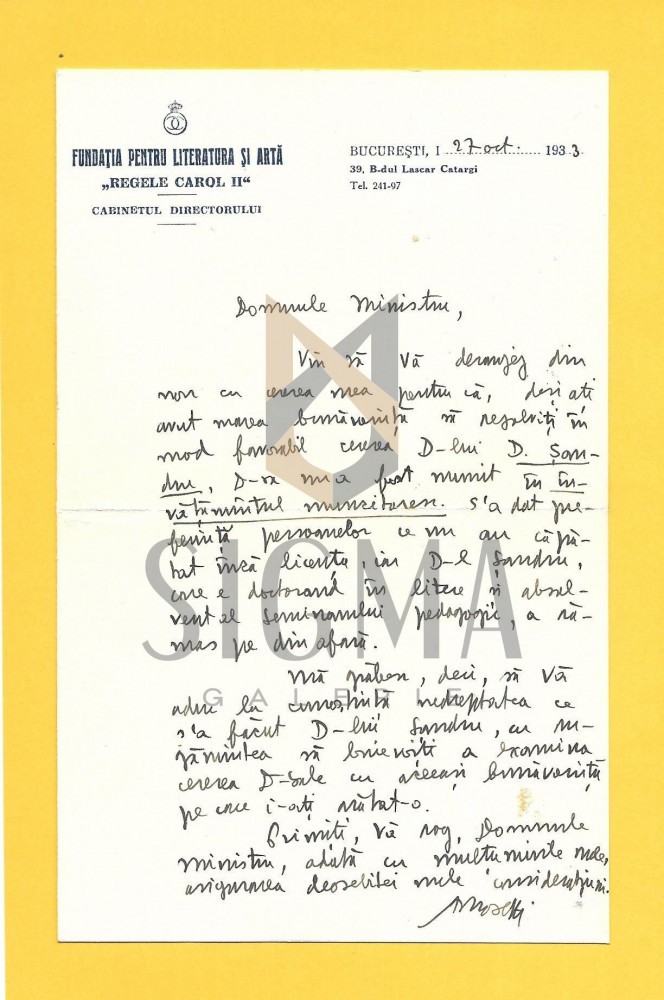 FUNDAȚIA PENTRU LITERATURĂ ȘI ARTĂ
„REGELE CAROL II“
CABINETUL DIRECTORULUI
BUCUREȘTI, I 27 oct. 1933
39, B-dul Lascar Catargi
Tel. 241-97
Domnule Ministru,
Vin să Vă deranjez din
nou cu cererea mea pentru că, deși ați
avut marea bunăvoință să rezolviți în
mod favorabil cererea D-lui D. Șan-
dru, D-sa nu a fost numit în în-
vățământul muncitoresc. S'a dat pre-
ferință persoanelor ce nu au căpă-
tat încă licența, iar D-l Șandru,
care e doctorand în litere și absol-
vent al Seminarului pedagogic, a ră-
mas pe din afară.
Mă grăbesc, deci, să Vă
aduc la cunoștință nedreptatea ce
s'a făcut D-lui Șandru, cu ru-
gămintea să binevoiți a examina
cererea D-Sale cu aceeași bunăvoință
pe care i-ați arătat-o.
Primiți, Vă rog, Domnule
Ministru, odată cu mulțumirile mele,
asigurarea deosebitei mele considerațiuni.
A Rosetti
SIGMA
GALERIE